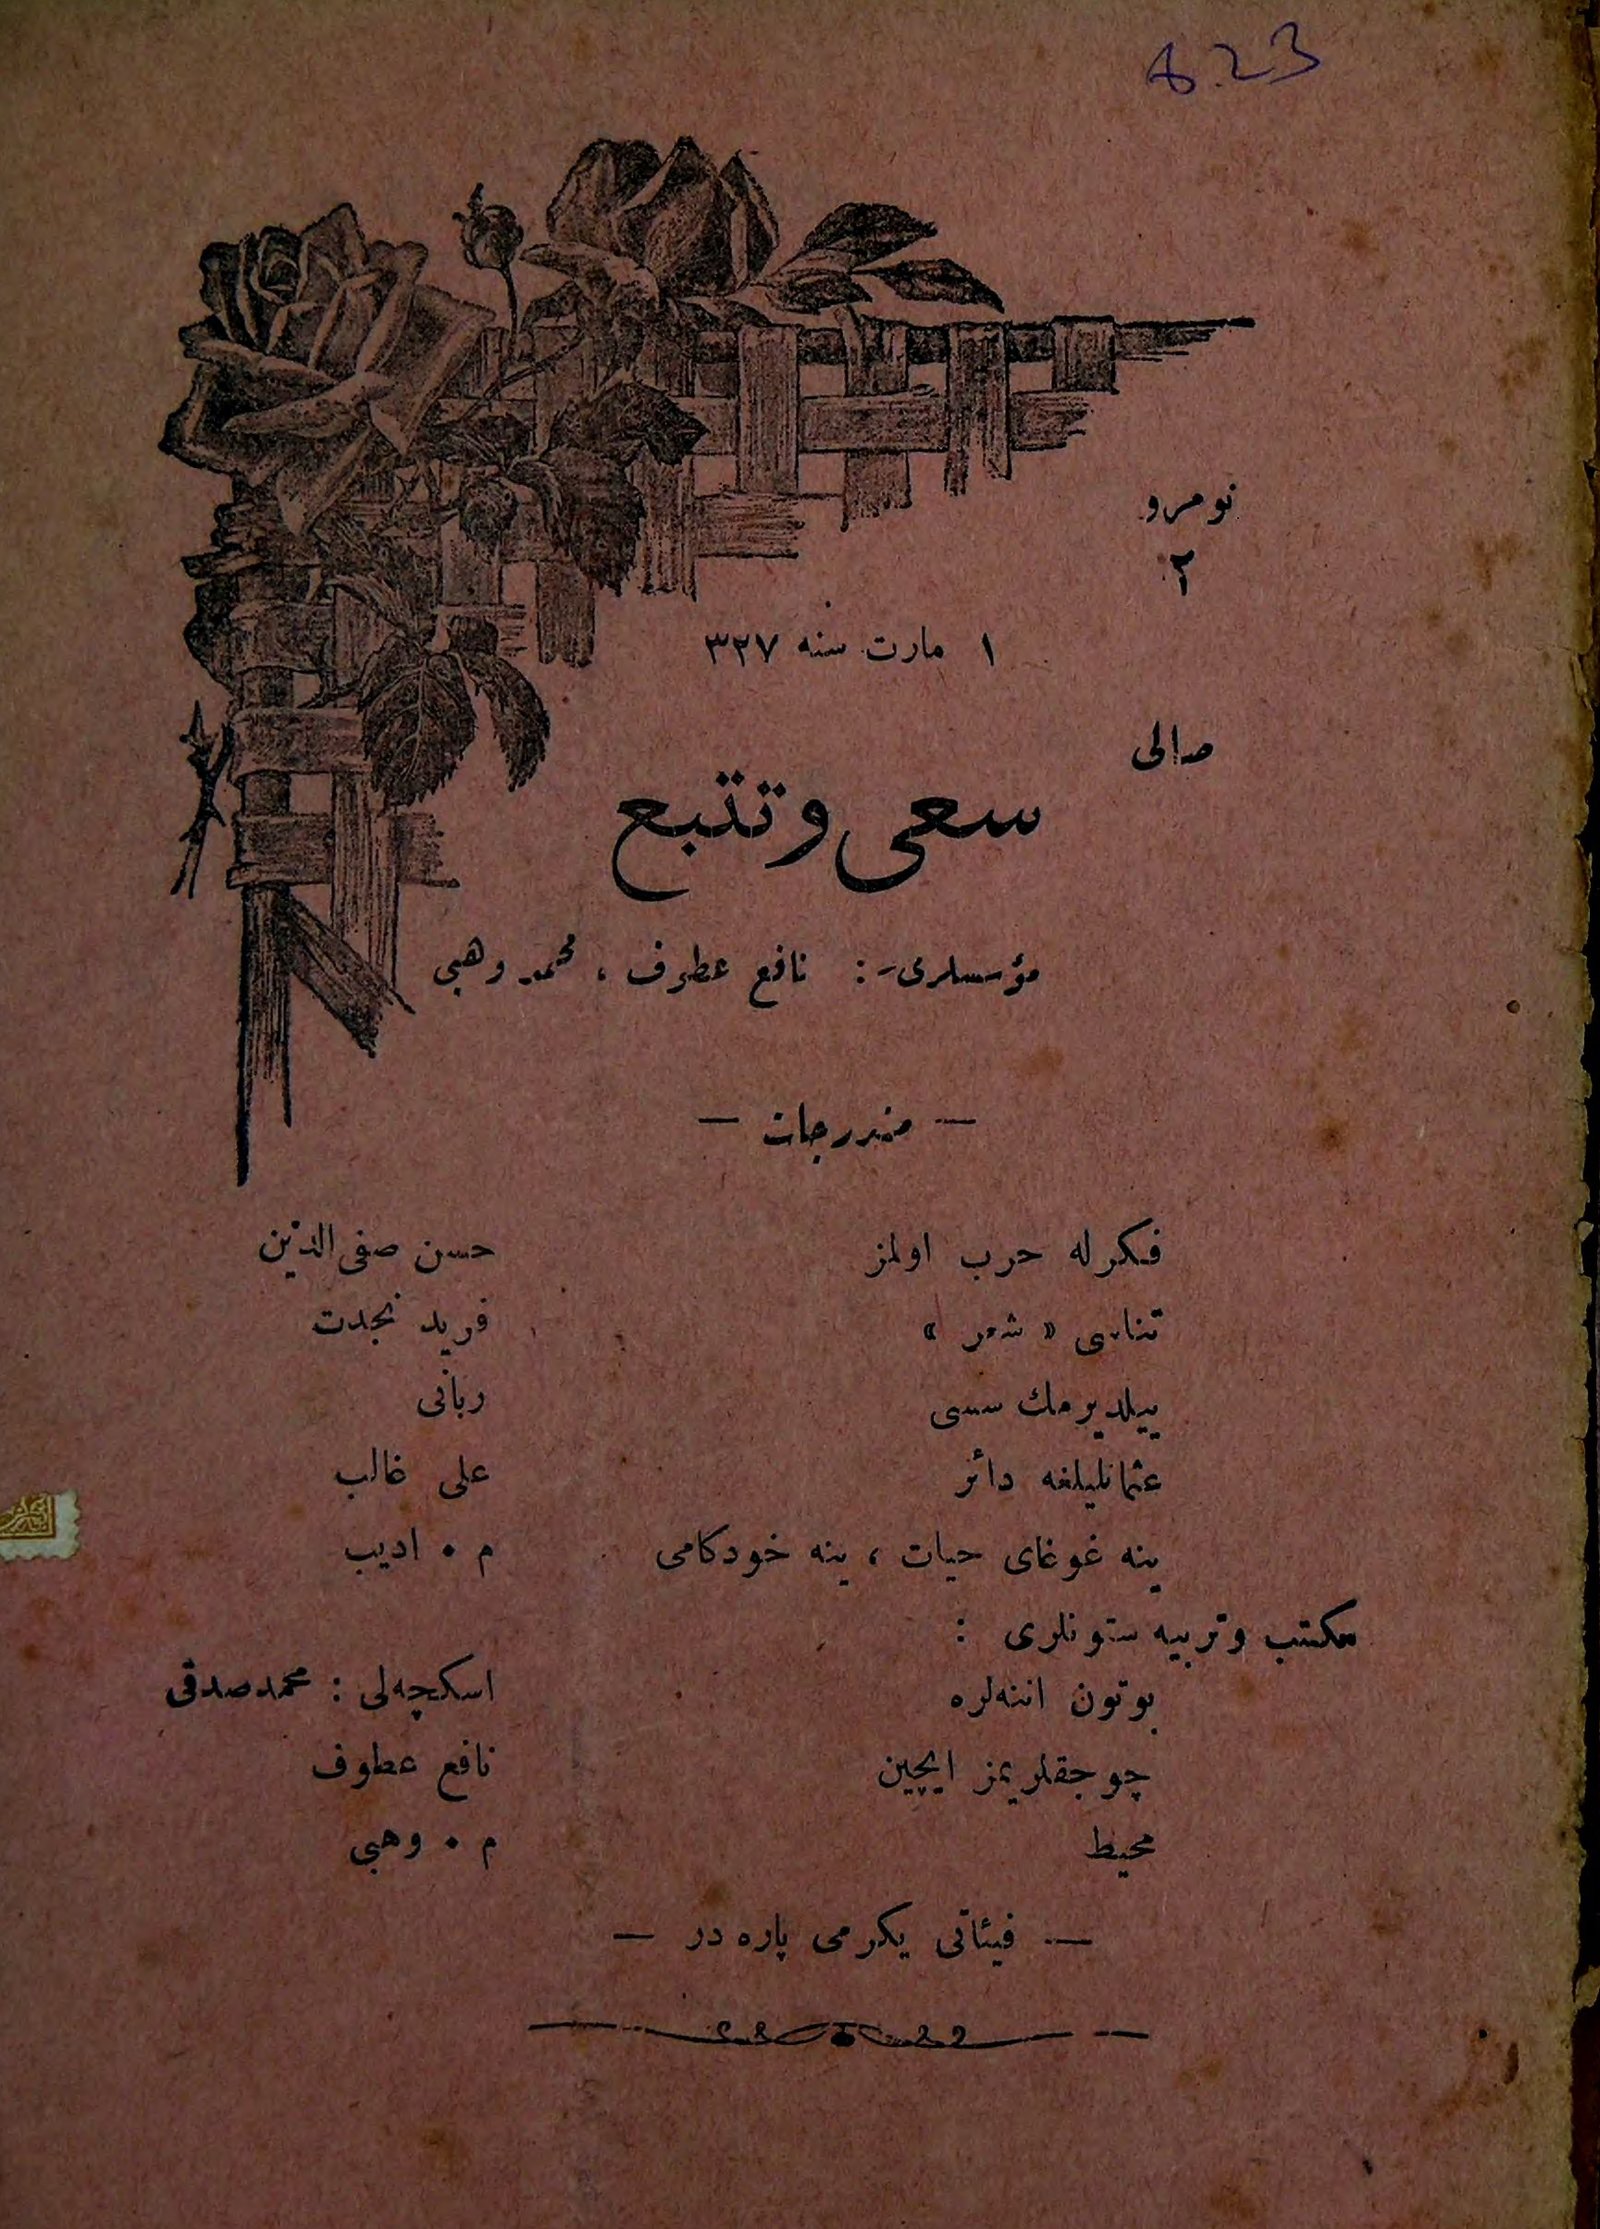 8.23
نومرو
٢
١ مارت سنه ٣٢٧
صالی
سعی و تتبع
مؤسسلری : نافع عطوف ، محمد وهبی
— مندرجات —
فکرله حرب اولمز حسن صفی‌الدین
تناسی « شعر » فرید نجدت
ییلدیرمك سسی ربانی
عثمانلیلغه دائر علی غالب
ینه غوغای حیات ، ینه خودکامی م . ادیب
مکتب و تربیه ستونلری :
بوتون اننه‌لره اسکچه‌لی : محمد صدقی
چوجقلریمز ایچین نافع عطوف
محیط م . وهبی
— فیئاتی یکرمی پاره در —